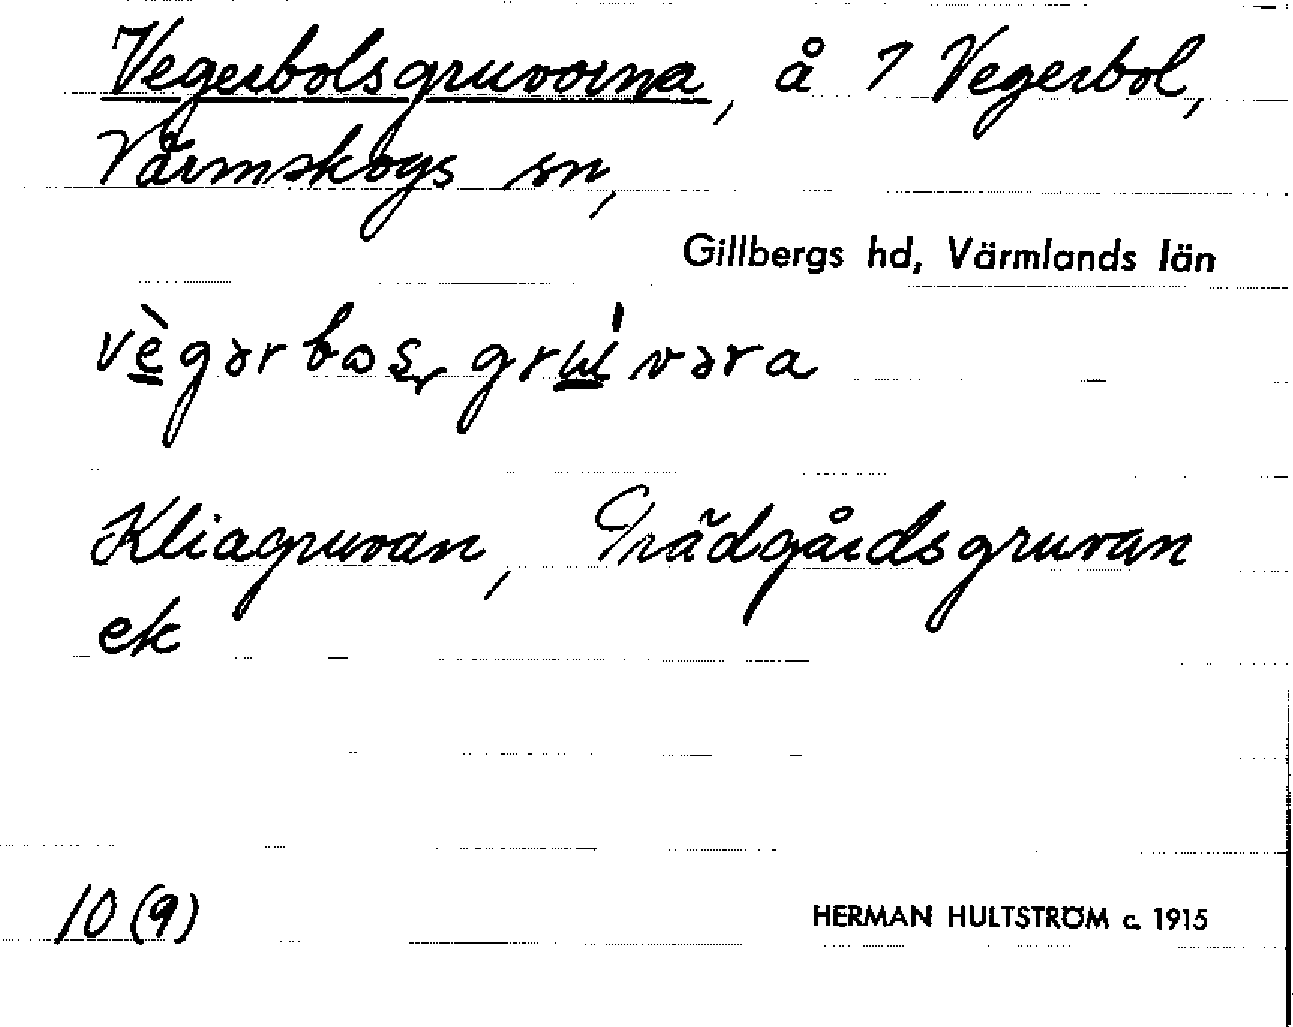 Vegerbolsgruvorna, å 7 Vegerbol,
Värmskogs sn,
Gillbergs hd, Värmlands län
vègərbos, grúvəra
Kliagruvan, Trädgårdsgruvan
ek
10 (9)
HERMAN HULTSTRÖM c. 1915